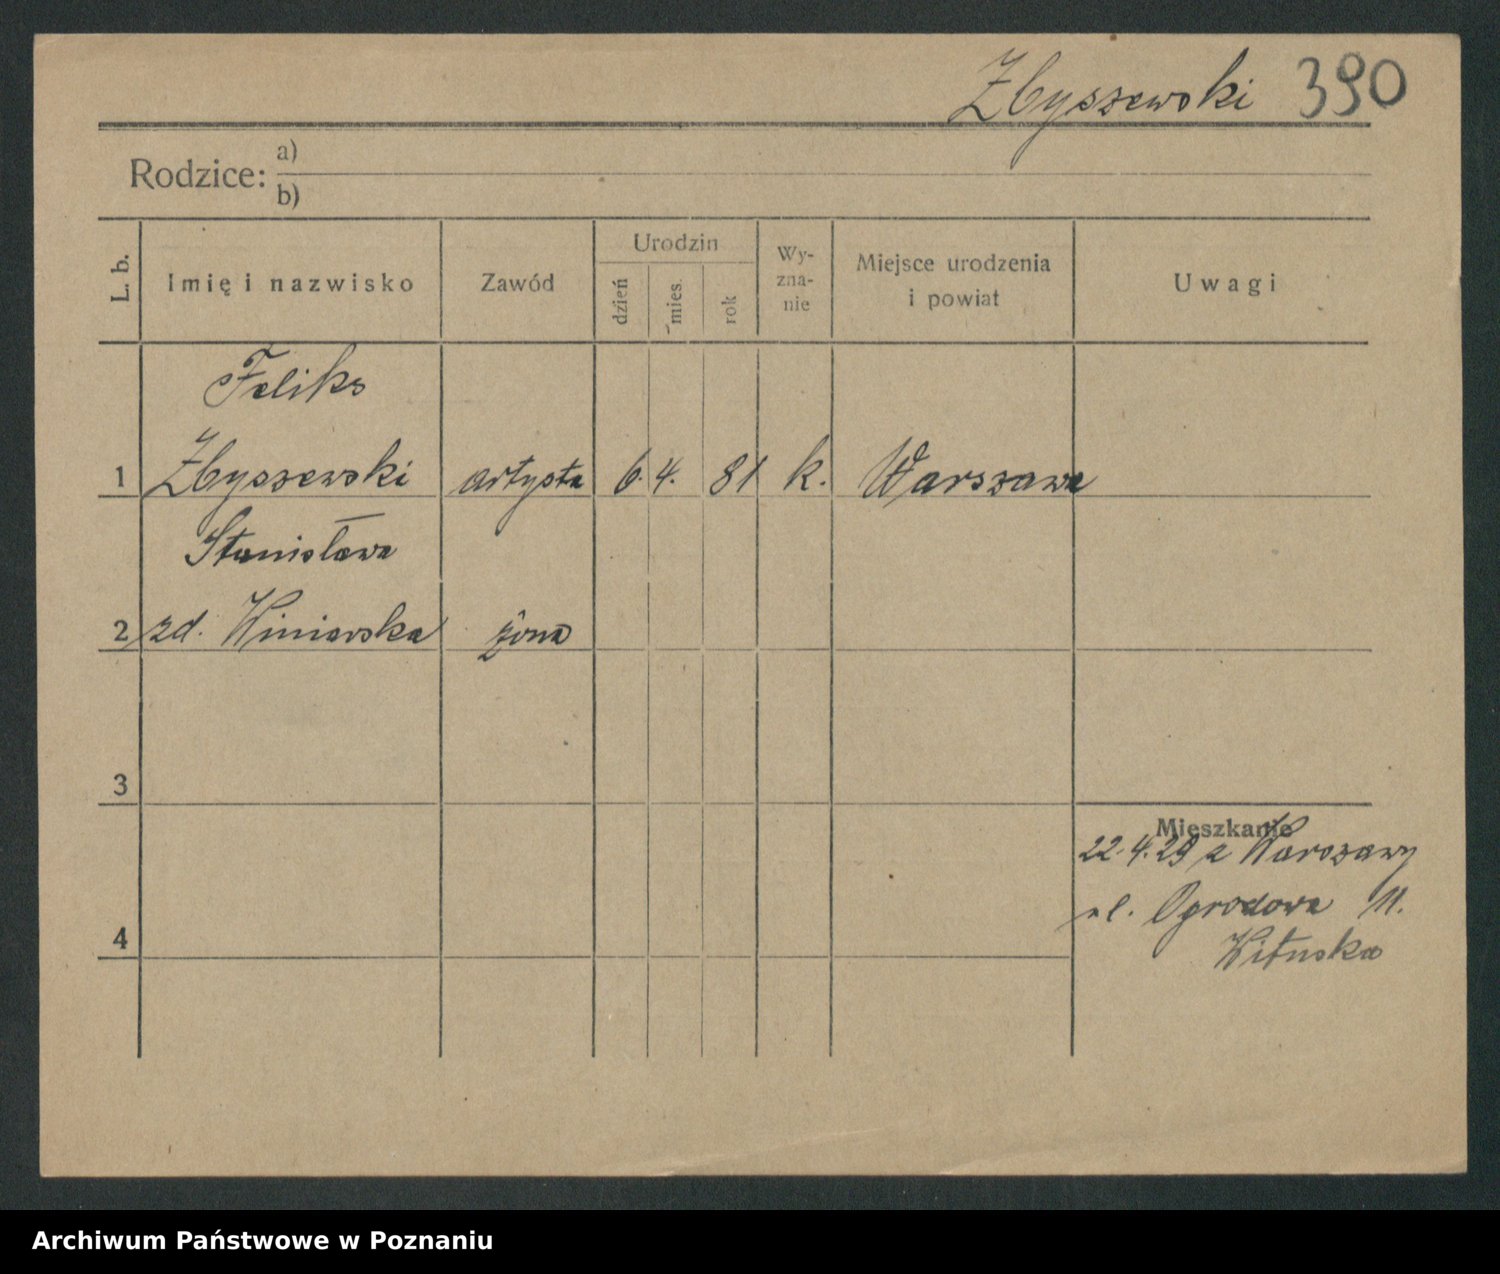 Zbyszewski 390
Rodzice: a)
b)
L. b. Imię i nazwisko Zawód Urodzin dzień mies. rok Wy-zna-nie Miejsce urodzenia i powiat Uwagi
Feliks
1 Zbyszewski artysta 6. 4. 81 k. Warszawa
Stanisława
2 zd. Winiarska żona
3
Mieszkanie
22.4.29 z Warszawy
ul. Ogrodowa 11.
4
Wituska
Archiwum Państwowe w Poznaniu